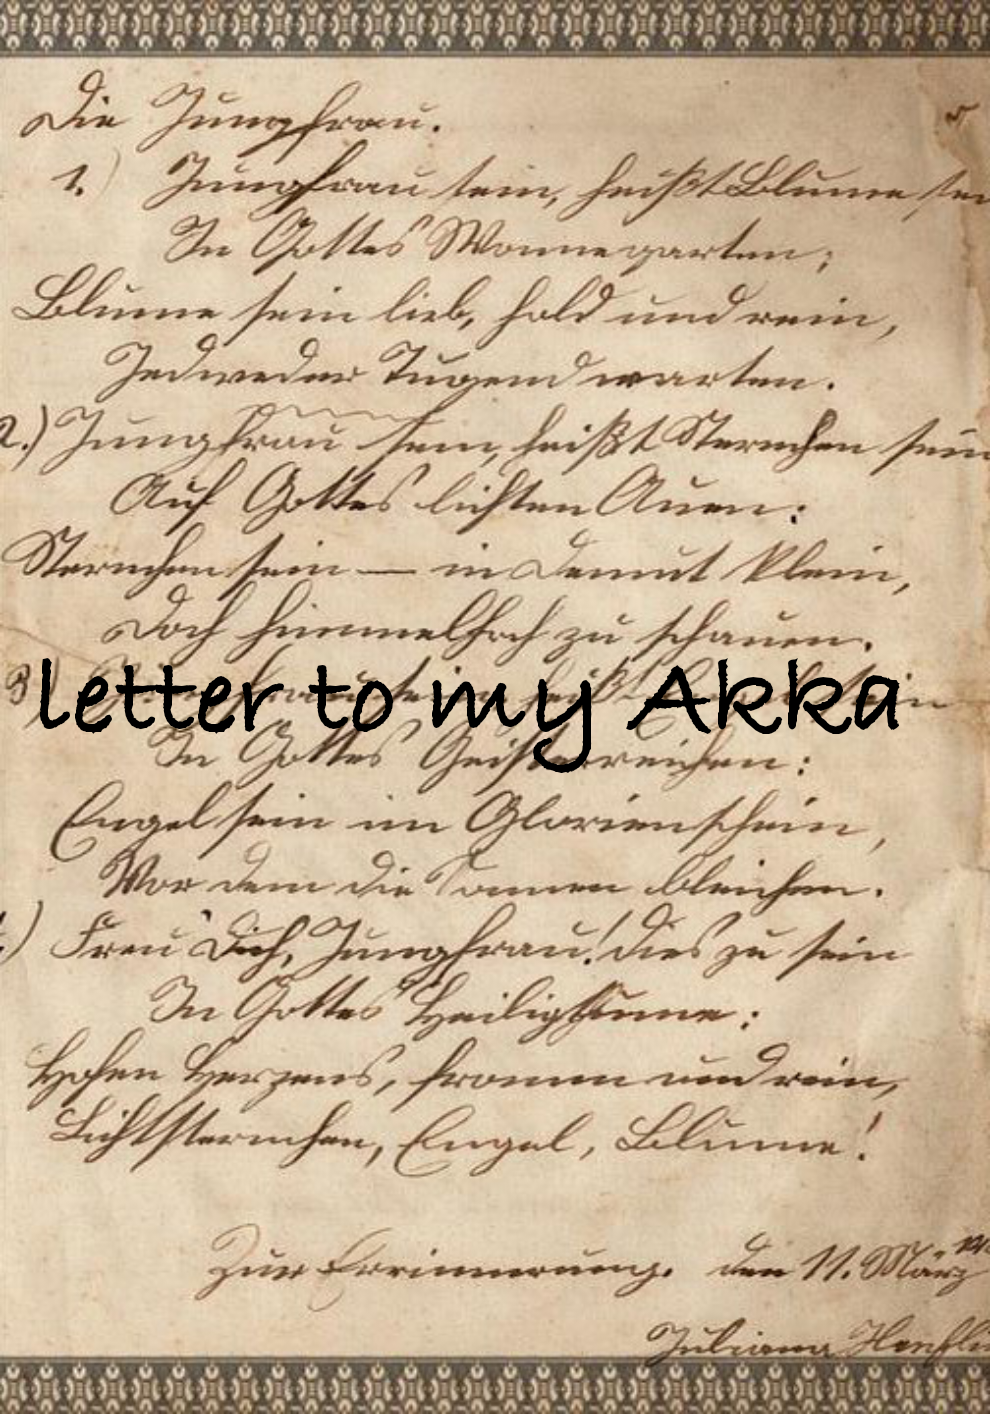 Die Jungfrau.
1.) Jungfrau sein, heißt Blume sein
In Gottes Wonnegarten;
Blume sein lieb, hold und rein,
Jedweder Tugend warten.
2.) Jungfrau sein, heißt Sternchen sein
Auf Gottes lichten Auen:
Sternchen sein — in Demut klein,
Doch himmelhoch zu schauen.
3) Jungfrau sein, heißt Engel sein
letter to my Akka
In Gottes Geisterreichen:
Engel sein im Glorienschein,
Vor dem die Sonnen bleichen.
.) Freu Dich, Jungfrau! dies zu sein
In Gottes Heiligtume:
Hohen Herzens, fromm und rein,
Lichtsternchen, Engel, Blume!
Zur Errinnerung. den 11. März
Juliana